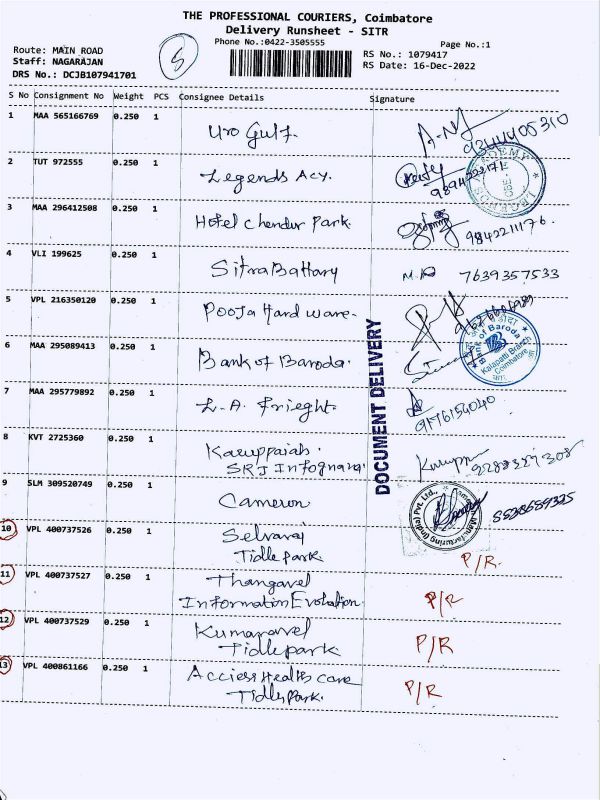 THE PROFESSIONAL COURIERS, Coimbatore
Delivery Runsheet - SITR
Phone No.:0422-3505555
Page No.:1
Route: MAIN_ROAD
RS No.: 1079417
Staff: NAGARAJAN
RS Date: 16-Dec-2022
DRS No.: DCJB107941701
5
S No Consignment No Weight PCS Consignee Details Signature
1 MAA 565166769 0.250 1 Uro Gulf. 9344405310
2 TUT 972555 0.250 1 Legends Acy.
3 MAA 296412508 0.250 1 Hotel Chendur Park. 9842211176.
4 VLI 199625 0.250 1 Sitra Battary 7639357533
5 VPL 216350120 0.250 1 Pooja Hard ware-
6 MAA 295089413 0.250 1 Bank of Baroda.
Bank of Baroda
Kalapatti Branch
Coimbatore
7 MAA 295779892 0.250 1 L.A. Frieght. 9176154040
DOCUMENT DELIVERY
8 KVT 2725360 0.250 1 Karuppaiah.
SRJ
9 SLM 309520749 0.250 1 Cameron
Manufacturing (India) Pvt. Ltd.,
10 VPL 400737526 0.250 1 Selvaraj
Tidle park. P/R.
11 VPL 400737527 0.250 1 Thangavel
Information Evolution. P/R
12 VPL 400737529 0.250 1 Kumaravel
Tidle park P/R
13 VPL 400861166 0.250 1 Acciess Health care
Tidle Park. P/R